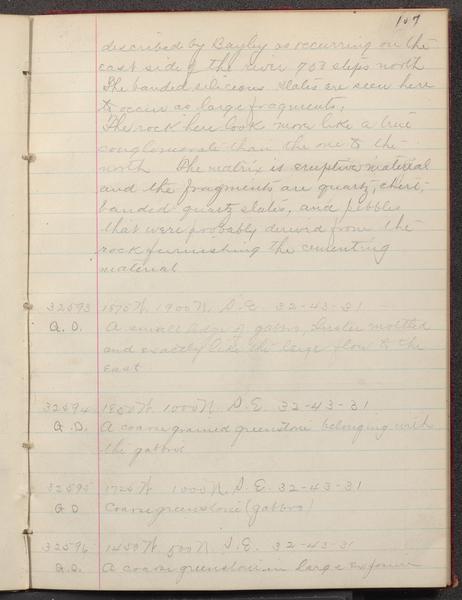 107
described by Bayley as occurring on the
east side of the river 703 steps north
The banded silicious slates are seen here
to occur as large fragments.
The rock here look more like a true
conglomerate than the one to the
north The matrix is eruptive material
and the fragments are quartz, chert,
banded quartz slates, and pebbles
that were probably derived from the
rock furnishing the cementing
material
32593 1875 W. 1900 N. S.E. 32-43-31
G.D. A small ledge of gabbro, luster mottled
and exactly like the large flow to the
east
32594 1800 W. 1000 N. S.E. 32-43-31
G.D. A coarse grained greenstone belonging with
the gabbro
32595 1725 W 1000 N. S.E. 32-43-31
G.D Coarse greenstone (gabbro)
32596 1450 W. 500 N. S.E. 32-43-31
G.D. A coarse greenstone in large